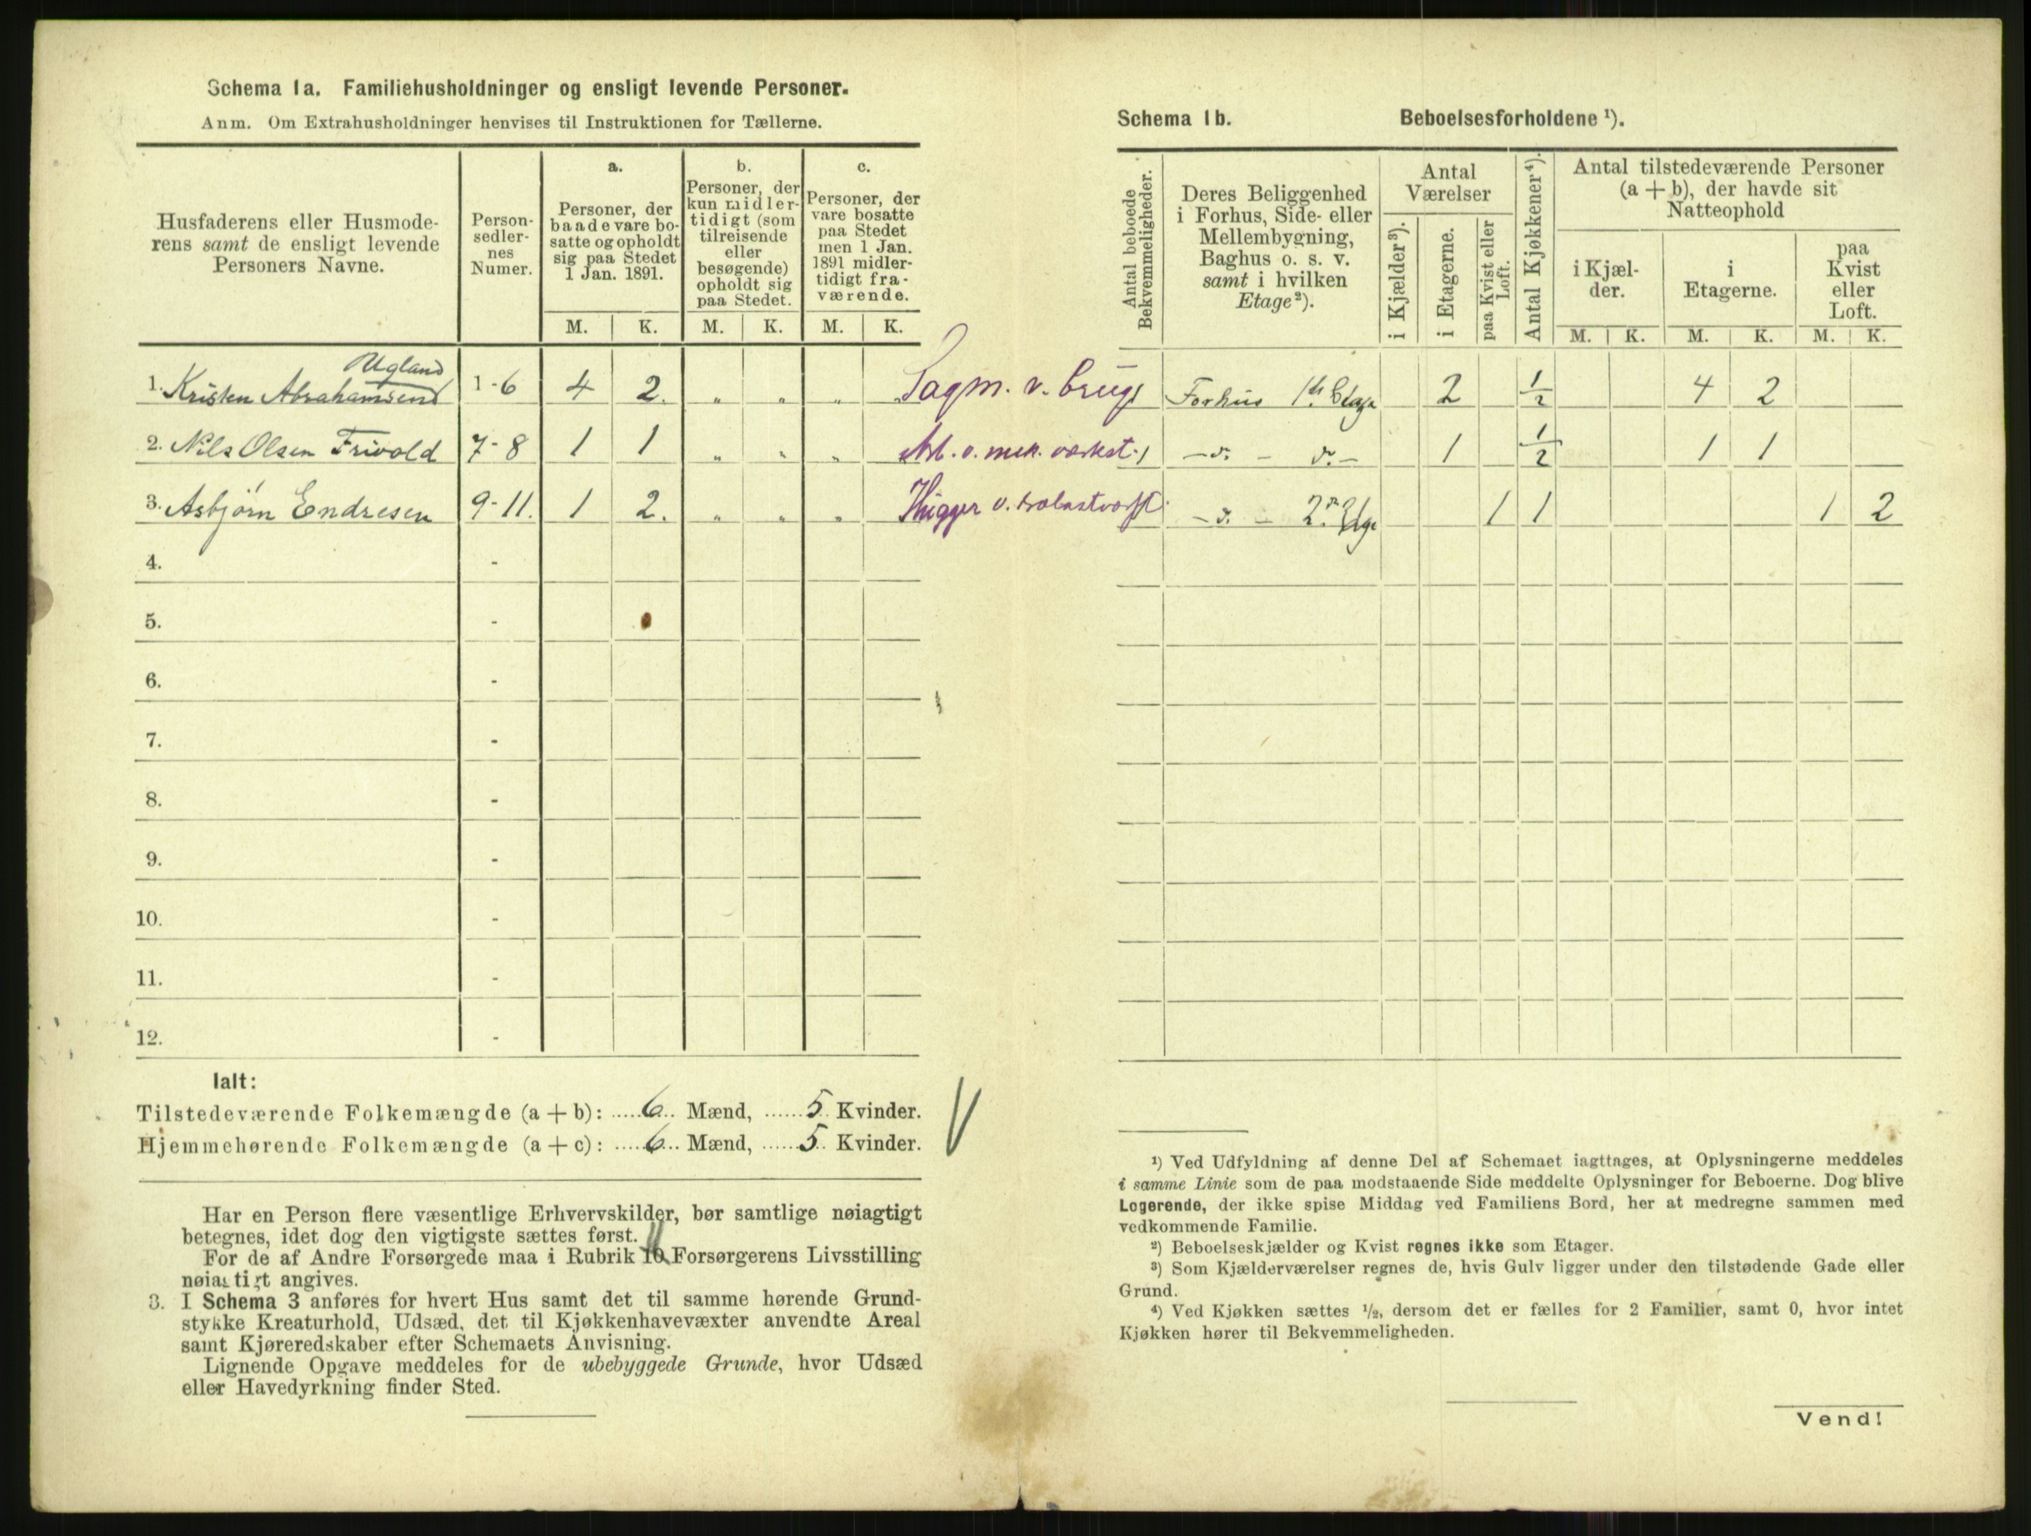 Schema 1a. Familiehusholdninger og ensligt levende Personer.
Anm. Om Extrahusholdninger henvises til Instruktionen for Tællerne.
Husfaderens eller Husmode-
rens samt de ensligt levende
Personers Navne.
Person-
sedler-
nes
Numer.
a.
Personer, der
baade vare bo-
satte og opholdt
sig paa Stedet
1 Jan. 1891.
b.
Personer, der
kun midler-
tidigt (som
tilreisende
eller
besøgende)
opholdt sig
paa Stedet.
c.
Personer, der
vare bosatte
paa Stedet
men 1 Jan.
1891 midler-
tidigt fra-
værende.
M. K. M. K. M. K.
Ugland
1. Kristen Abrahamsen 1-6 4 2. „ „ „ Sagm. v. brug
2. Nils Olsen Frivold 7-8 1 1 „ „ „ Arb. v. mek. værkst.
3. Asbjørn Endresen 9-11. 1 2. „ „ „ Hugger v.
4. -
5. -
6. -
7. -
8. -
9. -
10. -
11. -
12. -
Ialt:
Tilstedeværende Folkemængde (a + b): 6 Mænd, 5 Kvinder.
Hjemmehørende Folkemængde (a + c): 6 Mænd, 5 Kvinder.
Har en Person flere væsentlige Erhvervskilder, bør samtlige nøiagtigt
betegnes, idet dog den vigtigste sættes først.
11
For de af Andre Forsørgede maa i Rubrik 10 Forsørgerens Livsstilling
nøiagtigt angives.
3. I Schema 3 anføres for hvert Hus samt det til samme hørende Grund-
stykke Kreaturhold, Udsæd, det til Kjøkkenhavevæxter anvendte Areal
samt Kjøreredskaber efter Schemaets Anvisning.
Lignende Opgave meddeles for de ubebyggede Grunde, hvor Udsæd
eller Havedyrkning finder Sted.
Schema 1b. Beboelsesforholdene ¹).
Antal beboede
Bekvemmeligheder.
Deres Beliggenhed
i Forhus, Side- eller
Mellembygning,
Baghus o. s. v.
samt i hvilken
Etage ²).
Antal
Værelser
i Kjælder ³).
i Etagerne.
paa Kvist eller
Loft.
Antal Kjøkkener ⁴).
Antal tilstedeværende Personer
(a + b), der havde sit
Natteophold
i Kjæl-
der.
i
Etagerne.
paa
Kvist
eller
Loft.
M. K. M. K. M. K.
1 Forhus 1ste Etage 2 ½ 4 2
1 -d. - d. - 1 ½ 1 1
-d. - 2. Etge 1 1 1 2
¹) Ved Udfyldning af denne Del af Schemaet iagttages, at Oplysningerne meddeles
i samme Linie som de paa modstaaende Side meddelte Oplysninger for Beboerne. Dog blive
Logerende, der ikke spise Middag ved Familiens Bord, her at medregne sammen med
vedkommende Familie.
²) Beboelseskjælder og Kvist regnes ikke som Etager.
³) Som Kjælderværelser regnes de, hvis Gulv ligger under den tilstødende Gade eller
Grund.
⁴) Ved Kjøkken sættes ½, dersom det er fælles for 2 Familier, samt 0, hvor intet
Kjøkken hører til Bekvemmeligheden.
Vend!